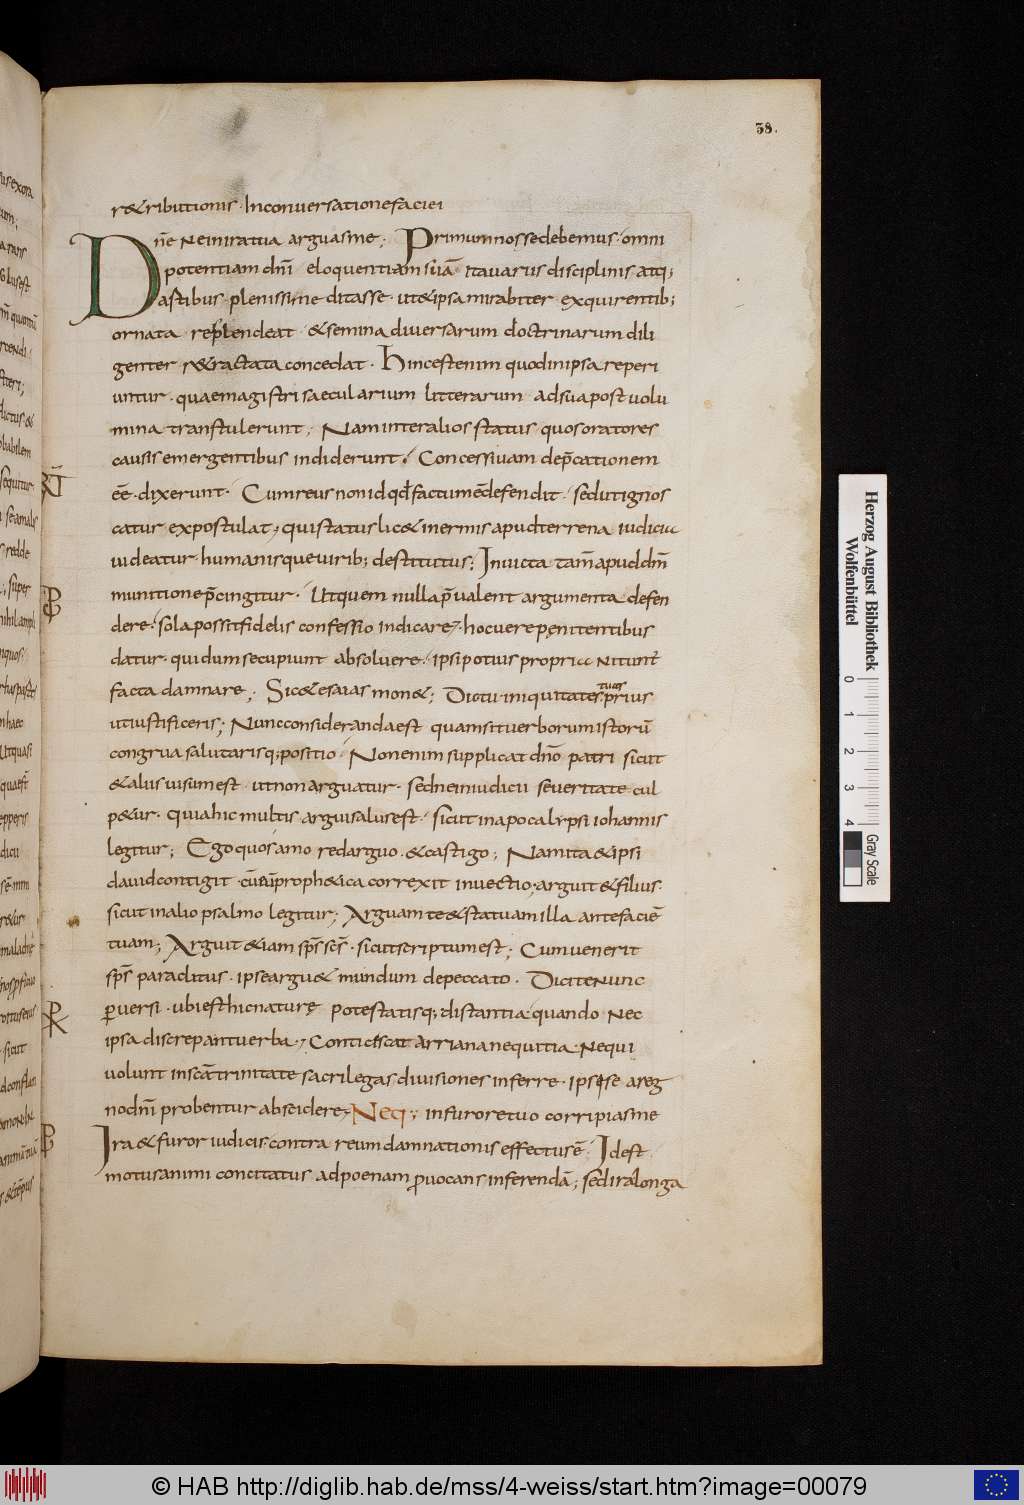 38.
r&ributionis · In conuersatione faciei
Dne Ne in ira tua arguas me; Primum nosse debemus · omni
potentiam dnī eloquentiam suā ita uarus disciplinis atq;
astibus plenissime ditasse · ut & ipsa mirabiter exquirentib;
ornata resplendeat · & semina diuersarum doctrinarum dili
genter r&ractata concedat · Hinc est enim quod in ipsa reperi
untur · quae magistri saecularium litterarum ad sua post uolu
mina transtulerunt; Nam inter alios status quos oratores
causis emergentibus indiderunt. Concessiuam dep̄cationem
eē · dixerunt · Cum reus non id qd factum ē defendit · sed ut ignos
catur expostulat, qui status lic& inermis apud terrena iudicia
uideatur humanisque uirib; destitutus; Inuicta tam̄ apud dnm̄
munitione p̄cingitur · Ut quem nulla p̄ualent argumenta defen
dere · sola possit fidelis confessio indicare, hoc uere penitentibus
datur · qui dum se cupiunt absoluere · ipsi potius propria nitunt̄
facta damnare; Sic & esaias mon&; Dic tu iniquitates tuas prius
ut iustificeris; Nunc consideranda est quam sit uerborum istorū
congrua salutarisq; positio · Non enim supplicat dno patri sicut
& aliis uisum est · ut non arguatur · sed ne in iudicii seueritate cul
p&ur · quia hic multis argui salus est · sicut in apocalypsi iohannis
legitur; Ego quos amo redarguo · & castigo; Nam ita & ipsi
dauid contigit · cū eū proph&ica correxit inuectio; arguit & filius ·
sicut in alio psalmo legitur; Arguam te & statuam illa ante faciē
tuam; Arguit &iam sps̄ scs̄ · sicut scriptum est; Cum uenerit
sps̄ paraclitus · ipse argu& mundum de peccato · Dicite nunc
puersi · ubi est hic naturę potestatisq; distantia quando nec
ipsa discrepant uerba, Conticiscat arriana nequitia · Nequi
uolunt in scā trinitate sacrilegas diuisiones inferre · ips se a reg
no dnī probentur abscidere, Neq; in furore tuo corripias me
Ira & furor iudicis contra reum damnationis effectus ē · Id est
motus animi concitatus ad poenam puocans inferendā; sed ira longa
Herzog August Bibliothek
Wolfenbüttel
0 1 2 3 4
Gray Scale
© HAB http://diglib.hab.de/mss/4-weiss/start.htm?image=00079